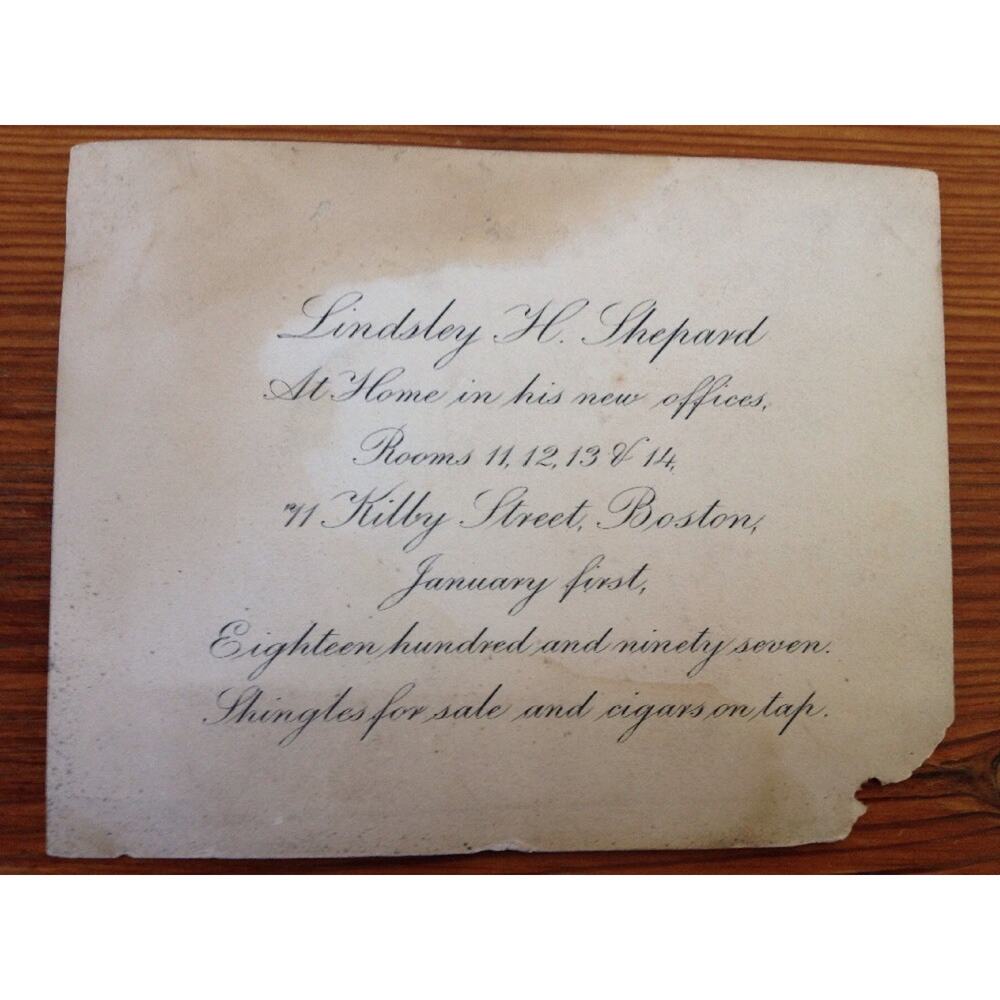 Lindsley H. Shepard
At Home in his new offices,
Rooms 11, 12, 13 & 14,
71 Kilby Street, Boston,
January first,
Eighteen hundred and ninety seven.
Shingles for sale and cigars on tap.